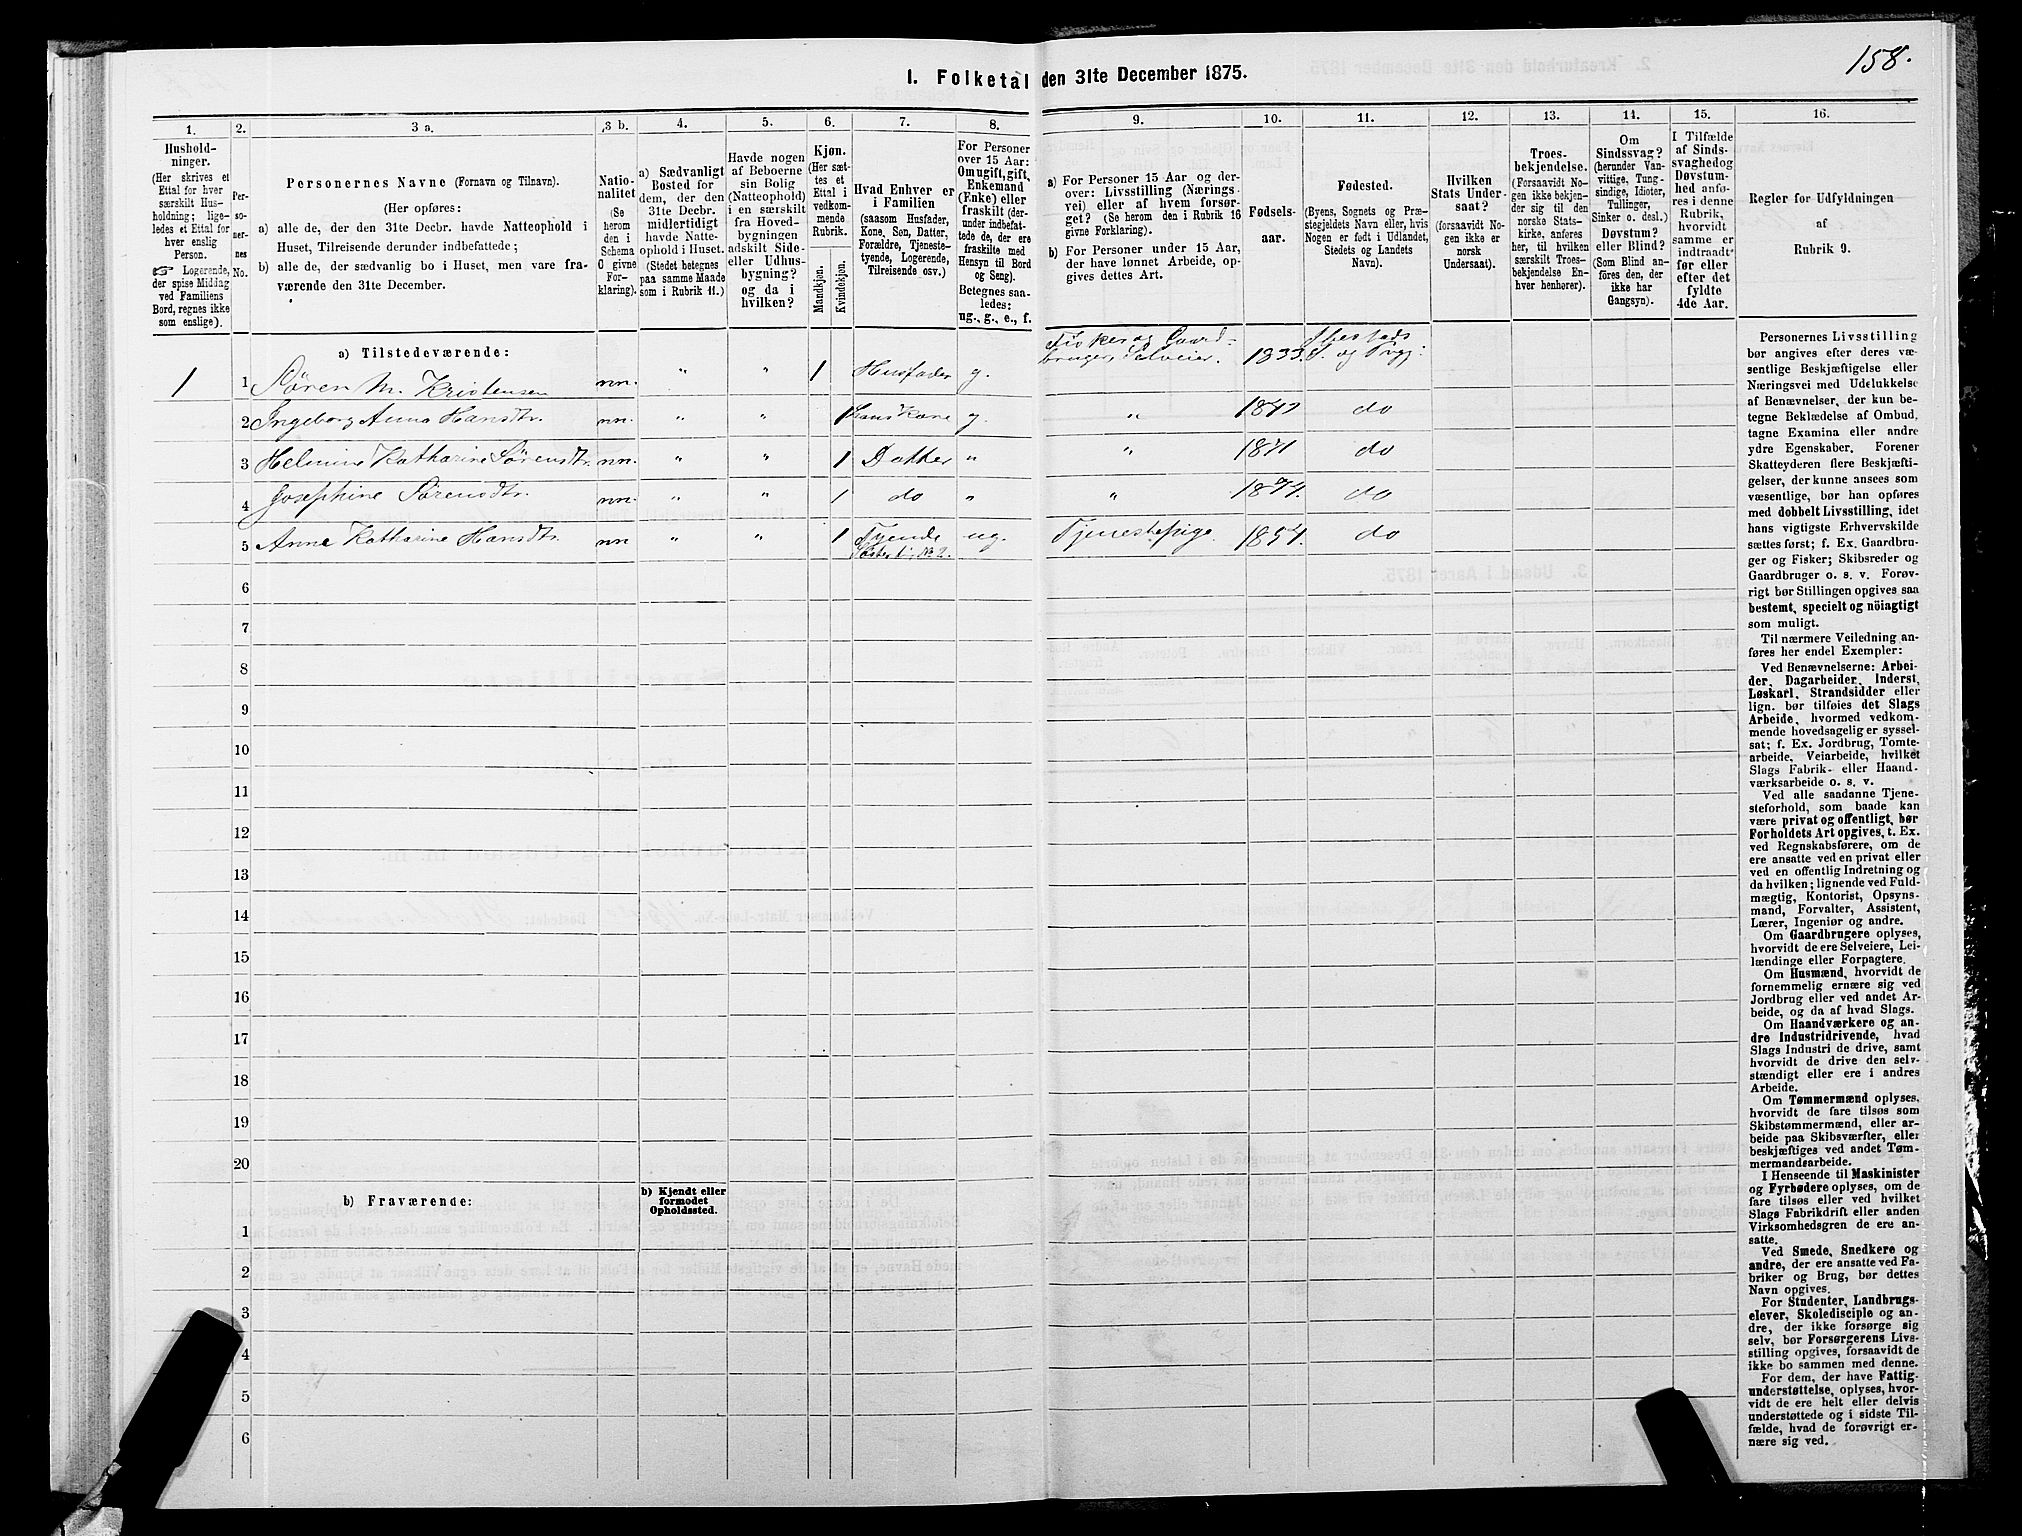 158.
1. Folketal den 31te December 1875.
1. 2. 3 a. 3 b. 4. 5. 6. 7. 8. 9. 10. 11. 12. 13. 14. 15. 16.
Hushold-
ninger.
(Her skrives et
Ettal for hver
særskilt Hus-
holdning; lige-
ledes et Ettal for
hver enslig
Person.
☞ Logerende,
der spise Middag
ved Familiens
Bord, regnes ikke
som enslige).
Per-
soner-
nes
No.
Personernes Navne (Fornavn og Tilnavn).
(Her opføres:
a) alle de, der den 31te Decbr. havde Natteophold i
Huset, Tilreisende derunder indbefattede;
b) alle de, der sædvanlig bo i Huset, men vare fra-
værende den 31te December.
Natio-
nalitet
(Se
herom
den i
Schema
C givne
For-
klaring).
a) Sædvanligt
Bosted for
dem, der den
31te Decbr.
midlertidigt
havde Natte-
ophold i Huset.
(Stedet betegnes
paa samme Maade
som i Rubrik 11.)
Havde nogen
af Beboerne
sin Bolig
(Natteophold)
i en særskilt
fra Hoved-
bygningen
adskilt Side-
eller Udhus-
bygning?
og da i
hvilken?
Kjøn.
(Her sæt-
tes et
Ettal i
vedkom-
mende
Rubrik.
Mandkjøn.
Kvindekjøn.
Hvad Enhver er
i Familien
(saasom Husfader,
Kone, Søn, Datter,
Forældre, Tjeneste-
tyende, Logerende,
Tilreisende osv.)
For Personer
over 15 Aar:
Om ugift, gift,
Enkemand
(Enke) eller
fraskilt (der-
under indbefat-
tede de, der ere
fraskilte med
Hensyn til Bord
og Seng).
Betegnes saa-
ledes:
ug., g., e., f.
a) For Personer 15 Aar og der-
over: Livsstilling (Nærings-
vei) eller af hvem forsør-
get? (Se herom den i Rubrik 16
givne Forklaring).
b) For Personer under 15 Aar,
der have lønnet Arbeide, op-
gives dettes Art.
Fødsels-
aar.
Fødested.
(Byens, Sognets og Præ-
stegjeldets Navn eller, hvis
Nogen er født i Udlandet,
Stedets og Landets
Navn).
Hvilken
Stats Under-
saat?
(forsaavidt No-
gen ikke er
norsk
Undersaat).
Troes-
bekjendelse.
(Forsaavidt No-
gen ikke bekjen-
der sig til den
norske Stats-
kirke, anføres
her, til hvilken
særskilt Troes-
bekjendelse En-
hver henhører).
Om
Sindssvag?
(herunder Van-
vittige, Tung-
sindige, Idioter,
Tullinger,
Sinker o. desl.)
Døvstum?
eller Blind?
(Som Blind an-
føres den, der
ikke har
Gangsyn).
I Tilfælde
af Sinds-
svaghed og
Døvstum-
hed anfø-
res i denne
Rubrik,
hvorvidt
samme er
indtraadt
før eller
efter det
fyldte
4de Aar.
Regler for Udfyldningen
af
Rubrik 9.
a) Tilstedeværende:
1 1 Søren M. Kristensen nn. " " 1 Husfader g. Fisker og Gaard-
bruger, Selveier. 1833. Ibestads
S. og Prgj:
2 Ingeborg Anna Hansdtr. nn. " " 1 hans Kone g. " do
3 Helmine Katharine Sørensdtr. nn. " " 1 Datter " " 1871 do
4 Josephine Sørensdtr. nn. " " 1 do " " 1874. do
5 Anne Katharine Hansdtr. nn " " 1 Tyende
Søster t: No 2. ug. Tjenestepige 1854. do
6
7
8
9
10
11
12
13
14
15
16
17
18
19
20
b) Fraværende:
b) Kjendt eller
formodet
Opholdssted.
1
2
3
4
5
6
Personernes Livsstilling
bør angives efter deres væ-
sentlige Beskjæftigelse eller
Næringsvei med Udelukkelse
af Benævnelser, der kun be-
tegne Beklædelse af Ombud,
tagne Examina eller andre
ydre Egenskaber. Forener
Skatteyderen flere Beskjæfti-
gelser, der kunne ansees som
væsentlige, bør han opføres
med dobbelt Livsstilling, idet
hans vigtigste Erhvervskilde
sættes først; f. Ex. Gaardbru-
ger og Fisker; Skibsreder og
Gaardbruger o. s. v. Forøv-
rigt bør Stillingen opgives saa
bestemt, specielt og nöiagtigt
som muligt.
Til nærmere Veiledning an-
føres her endel Exempler:
Ved Benævnelserne: Arbei-
der, Dagarbeider, Inderst,
Løskarl, Strandsidder eller
lign. bør tilføies det Slags
Arbeide, hvormed vedkom-
mende hovedsagelig er syssel-
sat; f. Ex. Jordbrug, Tomte-
arbeide, Veiarbeide, hvilket
Slags Fabrik- eller Haand-
værksarbeide o. s. v.
Ved alle saadanne Tjene-
steforhold, som baade kan
være privat og offentligt, bør
Forholdets Art opgives, t. Ex.
ved Regnskabsførere, om de
ere ansatte ved en privat eller
ved en offentlig Indretning og
da hvilken; lignende ved Fuld-
mægtig, Kontorist, Opsyns-
mand, Forvalter, Assistent,
Lærer, Ingeniør og andre.
Om Gaardbrugere oplyses,
hvorvidt de ere Selveiere, Lei-
lændinge eller Forpagtere.
Om Husmænd, hvorvidt de
fornemmelig ernære sig ved
Jordbrug eller ved andet Ar-
beide, og da af hvad Slags.
Om Haandværkere og an-
dre Industridrivende, hvad
Slags Industri de drive, samt
hvorvidt de drive den selv-
stændigt eller ere i andres
Arbeide.
Om Tømmermænd oplyses,
hvorvidt de fare tilsøs som
Skibstømmermænd, eller ar-
beide paa Skibsværfter, eller
beskjæftiges ved andet Tøm-
mermandsarbeide.
I Henseende til Maskinister
og Fyrbødere oplyses, om de
fare tilsøs eller ved hvilket
Slags Fabrikdrift eller anden
Virksomhedsgren de ere an-
satte.
Ved Smede, Snedkere og
andre, der ere ansatte ved Fa-
briker og Brug, bør dettes
Navn opgives.
For Studenter, Landbrugs-
elever, Skoledisciple og an-
dre, der ikke forsørge sig
selv, bør Forsørgerens Livs-
stilling opgives, forsaavidt de
ikke bo sammen med denne.
For dem, der have Fattig-
understøttelse, oplyses, hvor-
vidt de ere helt eller delvis
understøttede og i sidste Til-
fælde, hvad de forøvrigt er-
nære sig ved.